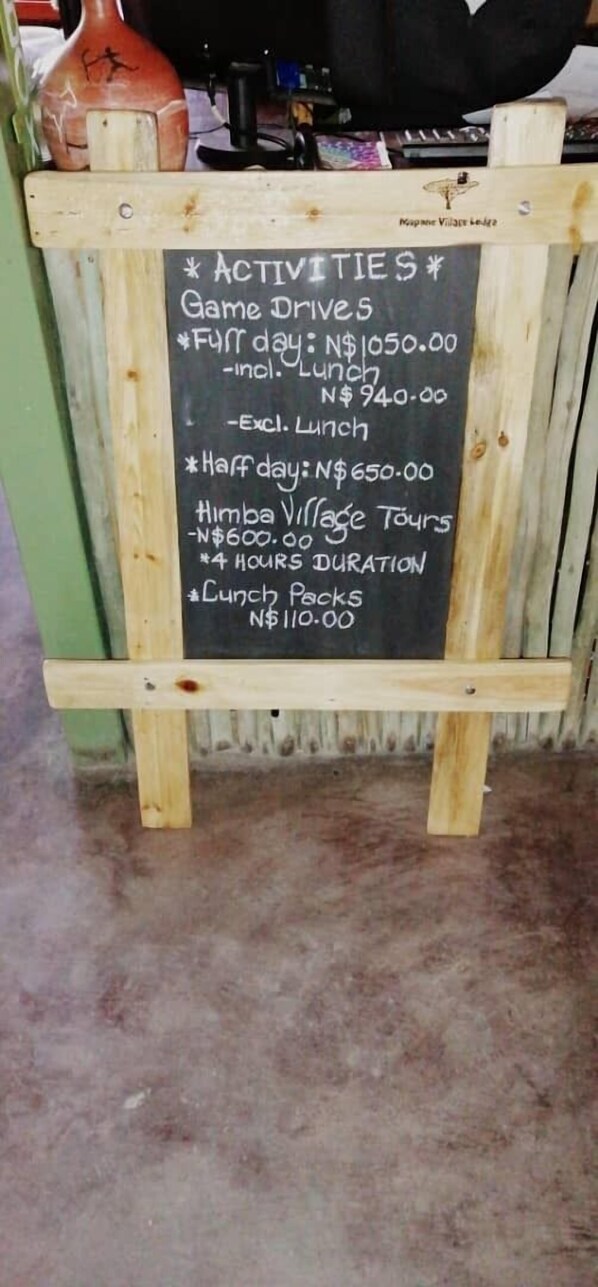 Mopane Village Lodge
* ACTIVITIES *
Game Drives
*Full day: N$1050.00
-incl. Lunch
N$ 940.00
-Excl. Lunch
*Half day: N$650.00
Himba Village Tours
-N$600.00
*4 HOURS DURATION
*Lunch Packs
N$110.00